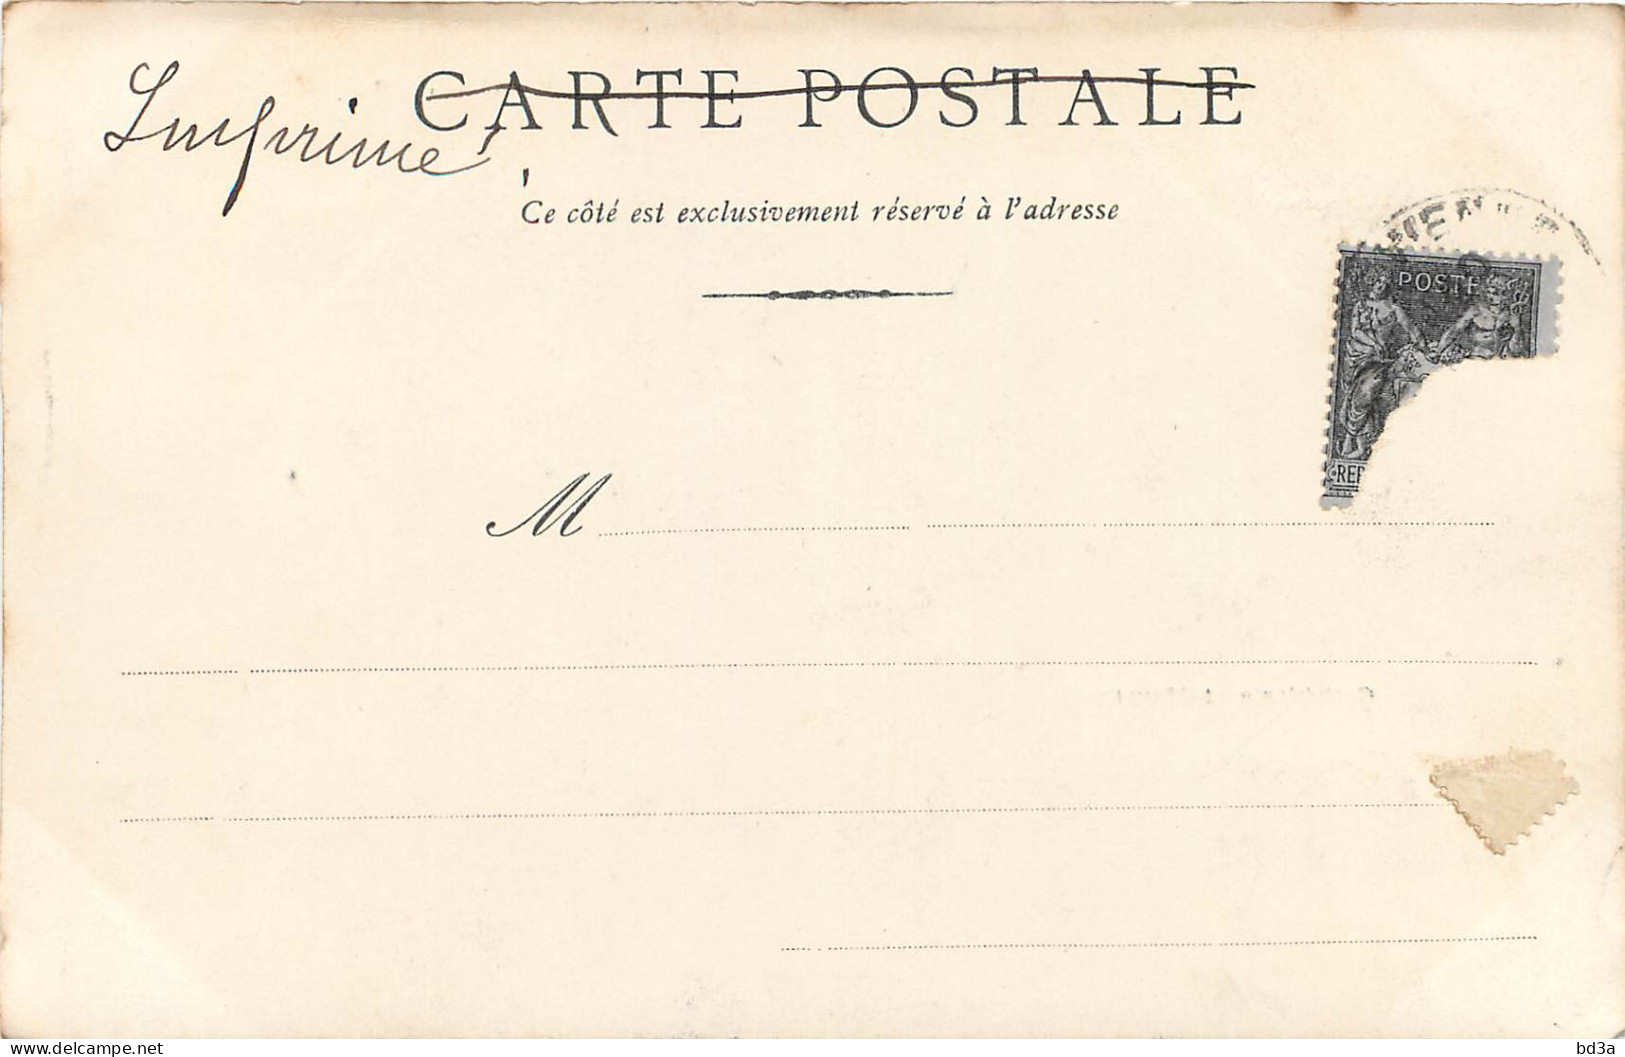 CARTE POSTALE
Imprimé
Ce côté est exclusivement réservé à l'adresse
POSTE
REP
M
delcampe.net
bd3a